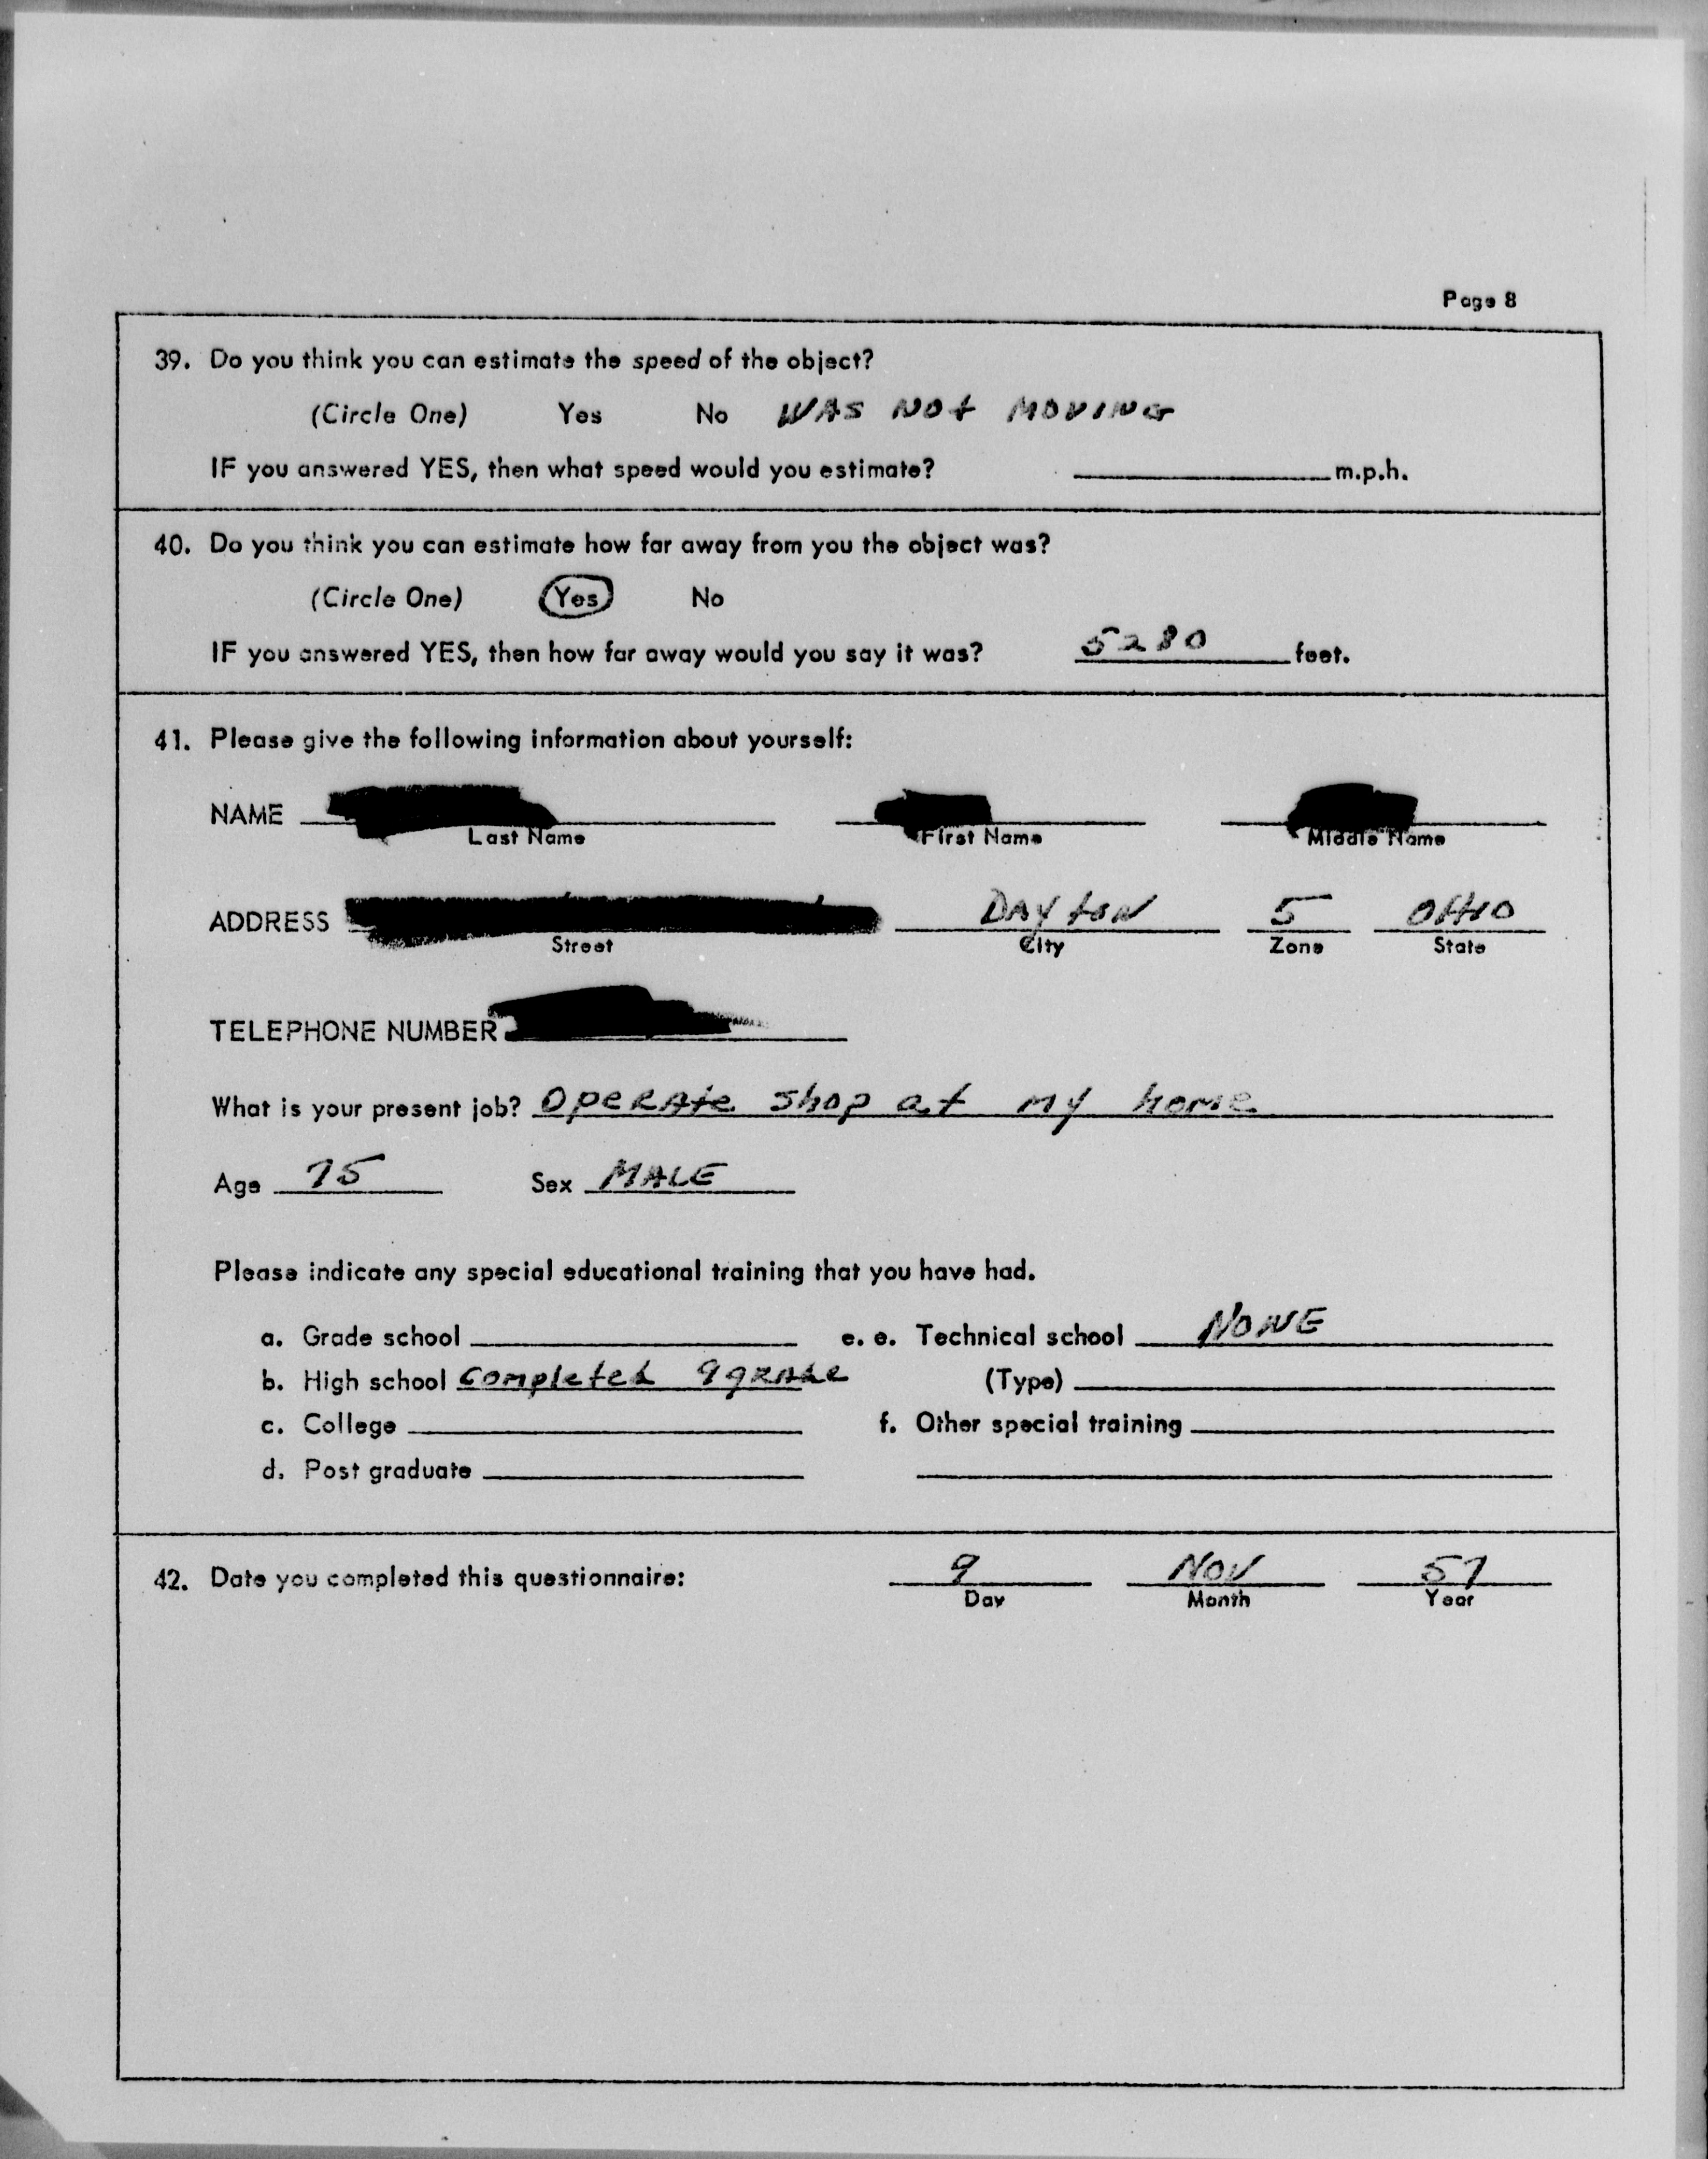 Page 8
39. Do you think you can estimate the speed of the object?
(Circle One) Yes No WAS NOt MOVING
IF you answered YES, then what speed would you estimate? m.p.h.
40. Do you think you can estimate how far away from you the object was?
(Circle One) Yes No
IF you answered YES, then how far away would you say it was? 5280 feet.
41. Please give the following information about yourself:
NAME
Last Name First Name Middle Name
ADDRESS DAYtON 5 OHIO
Street City Zone State
TELEPHONE NUMBER
What is your present job? OPERAte shop at my home
Age 75 Sex MALE
Please indicate any special educational training that you have had.
a. Grade school e. e. Technical school NONE
b. High school completed 9 gRAde (Type)
c. College f. Other special training
d. Post graduate
42. Date you completed this questionnaire: 9 NOV 57
Day Month Year